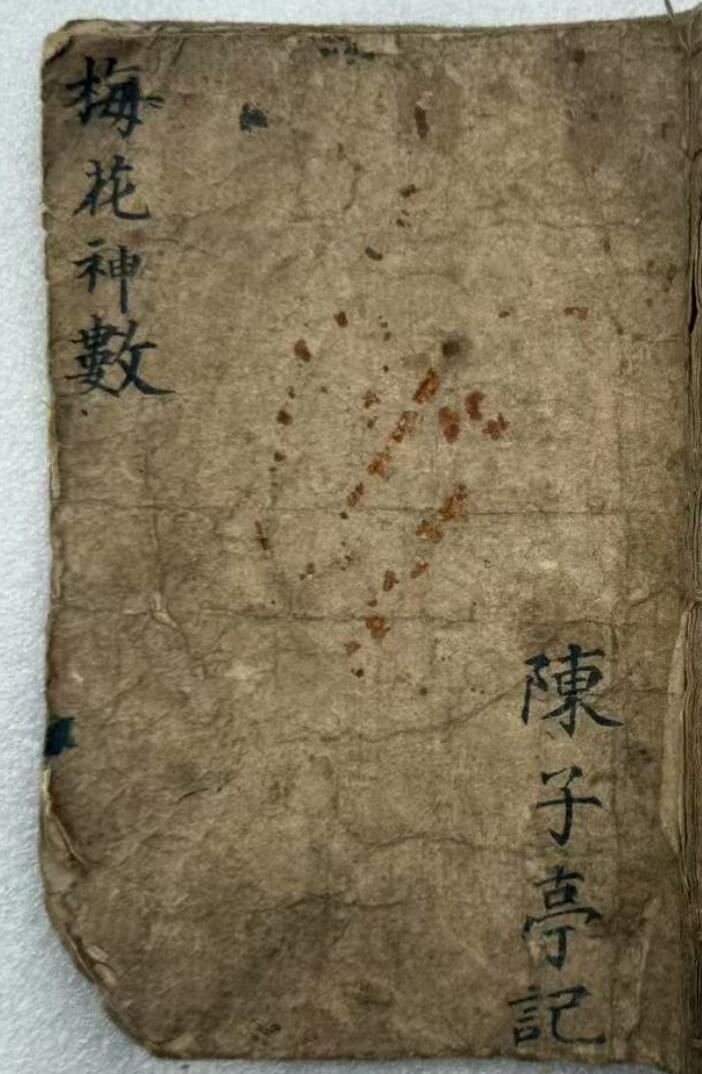 梅花神數
陳子亭記